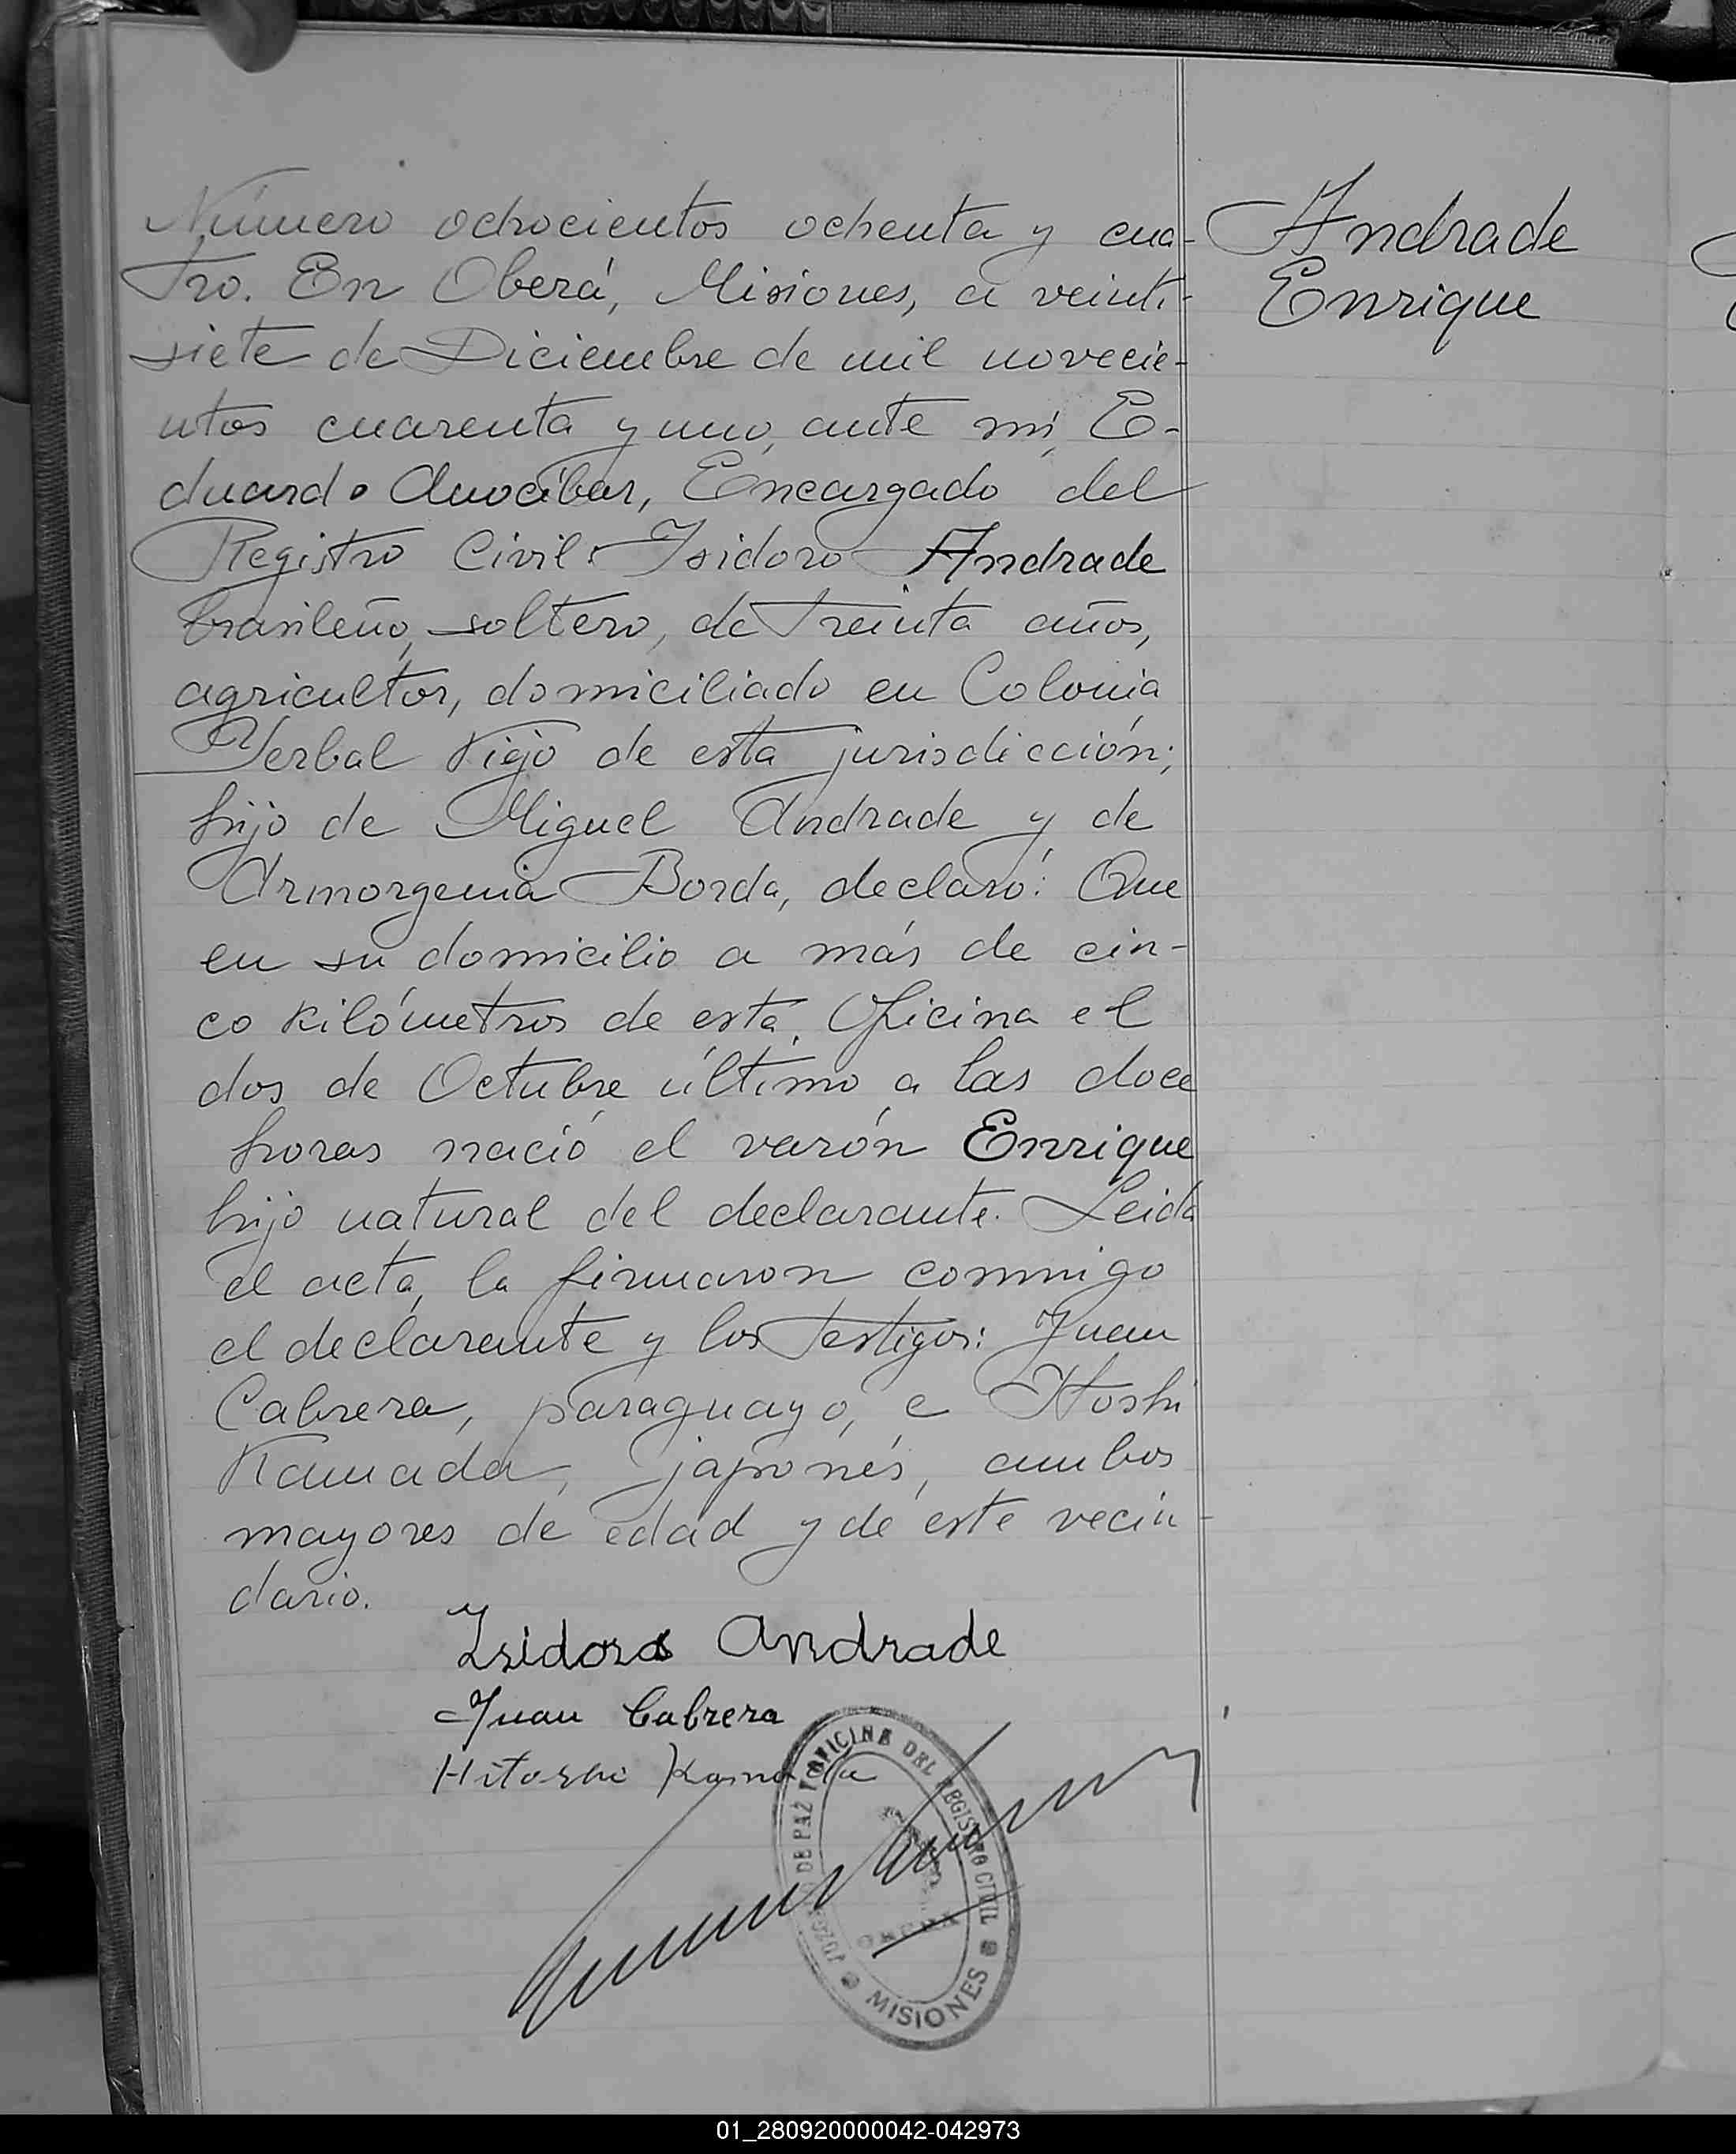 Número ochocientos ochenta y cua-
tro. En Oberá, Misiones, a veinti-
siete de Diciembre de mil novecie-
ntos cuarenta y uno, ante mí, E-
duardo Anocíbar, Encargado del
Registro Civil: Isidoro Andrade
brasileño, soltero, de treinta años,
agricultor, domiciliado en Colonia
Yerbal Viejo de esta jurisdicción;
hijo de Miguel Andrade y de
Armorgenia Borda, declaró: Que
en su domicilio a más de cin-
co kilómetros de esta Oficina el
dos de Octubre último a las doce
horas nació el varón Enrique
hijo natural del declarante. Leida
el acta, la firmaron conmigo
el declarante y los testigos: Juan
Cabrera, paraguayo, e Itoshi
Kamada, japonés, ambos
mayores de edad y de este vecin-
dario.
Isidoro Andrade
Juan Cabrera
Hitoshi Kamada
Andrade
Enrique
JUZGADO DE PAZ Y OFICINA DEL REGISTRO CIVIL
MISIONES
01_280920000042-042973